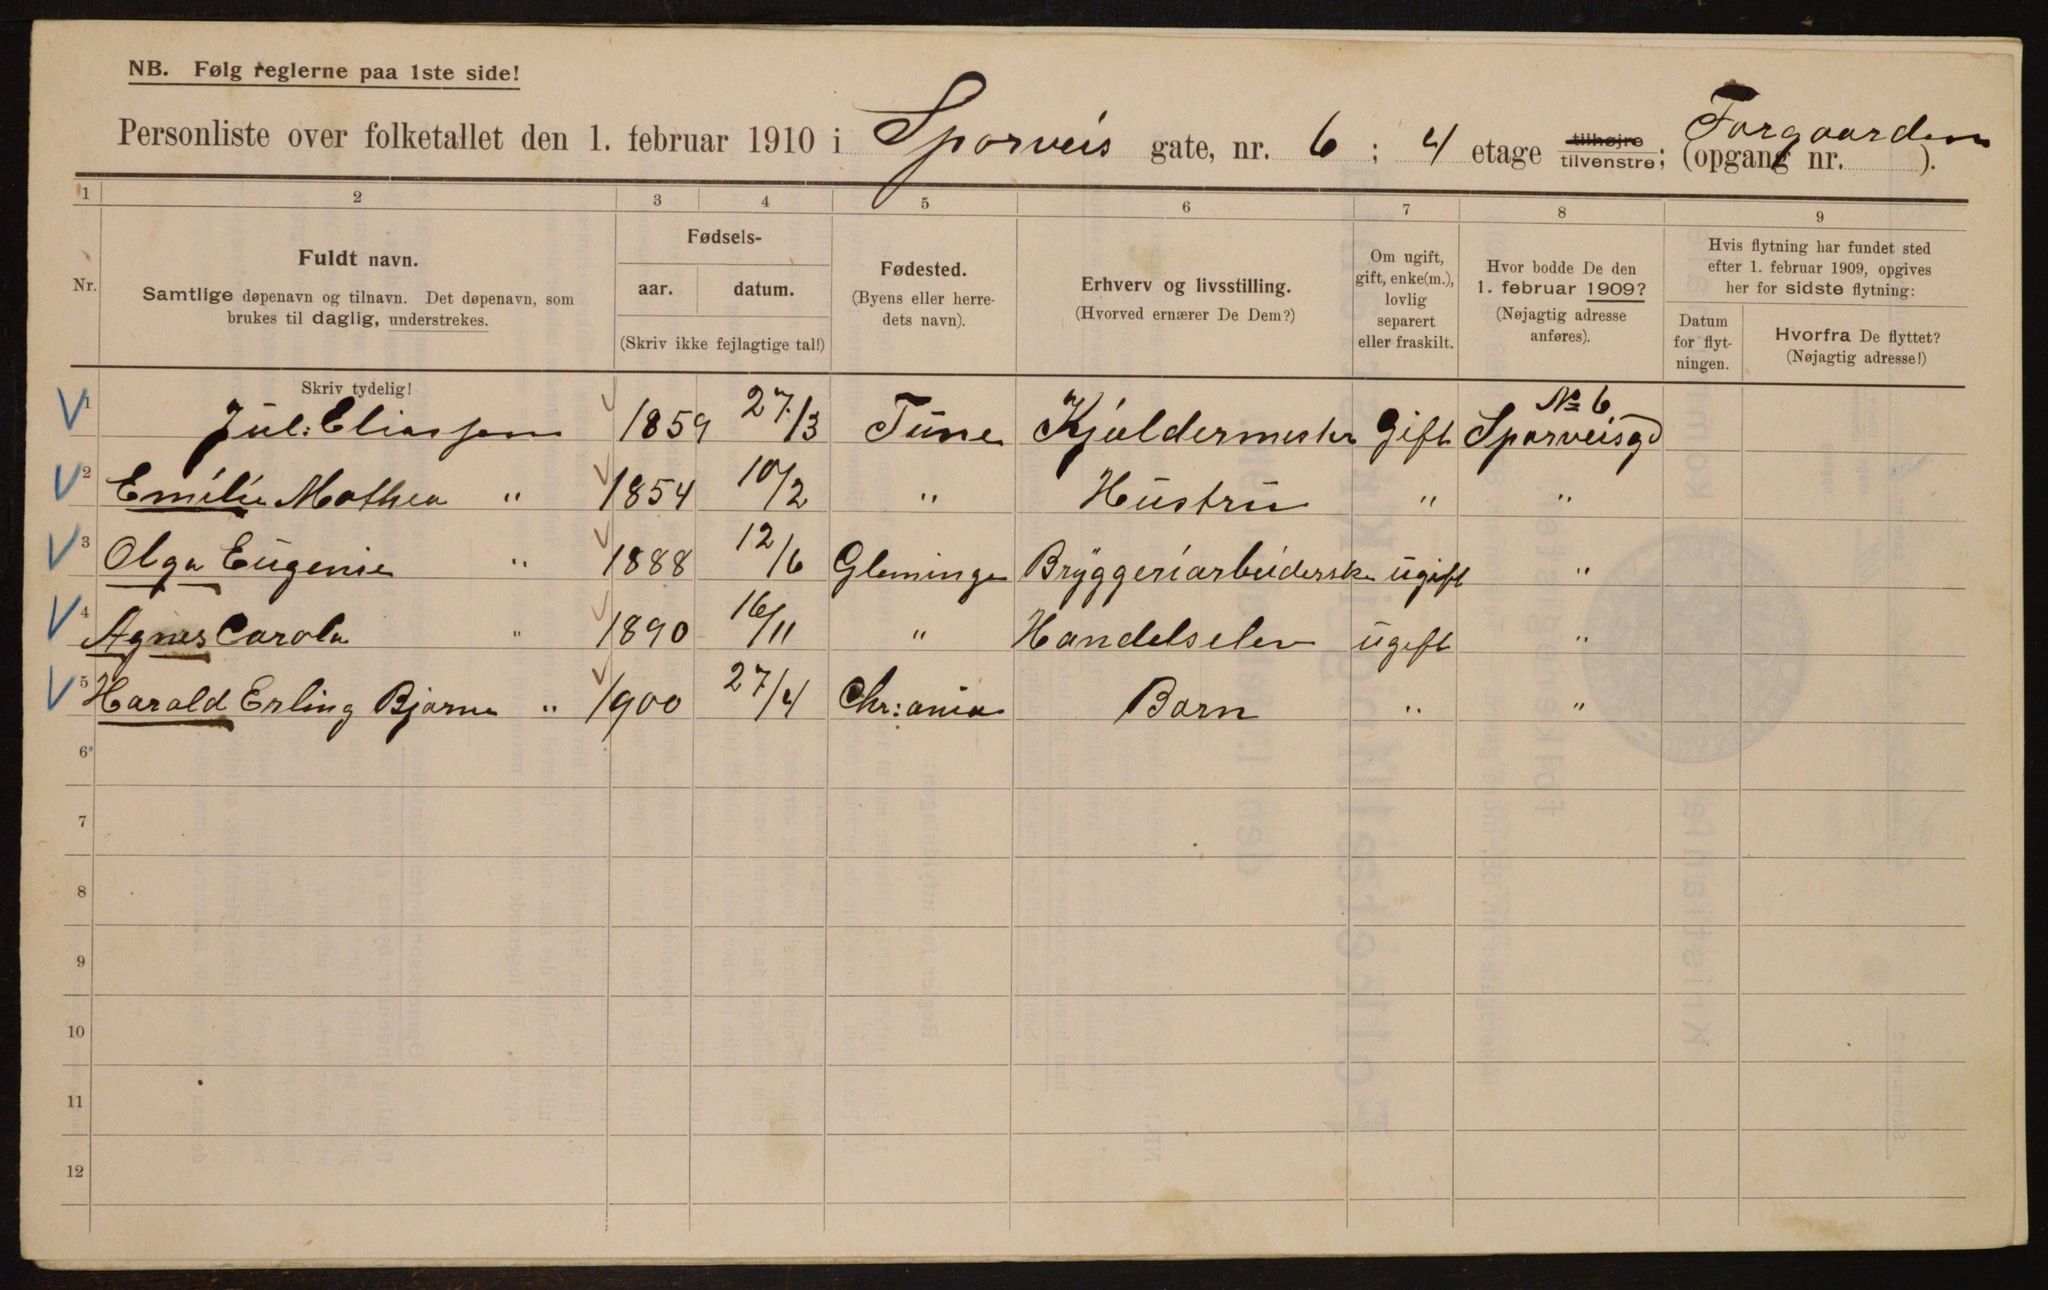 NB. Følg reglerne paa 1ste side!
Personliste over folketallet den 1. februar 1910 i Sporveis gate, nr. 6 ; 4 etage tilhøjre tilvenstre; (opgang nr. Forgaarden ).
1 2 3 4 5 6 7 8 9
Nr.
Fuldt navn.
Samtlige døpenavn og tilnavn. Det døpenavn, som
brukes til daglig, understrekes.
Fødsels-
aar. datum.
(Skriv ikke fejlagtige tal!)
Fødested.
(Byens eller herre-
dets navn).
Erhverv og livsstilling.
(Hvorved ernærer De Dem?)
Om ugift,
gift, enke(m.),
lovlig
separert
eller fraskilt.
Hvor bodde De den
1. februar 1909?
(Nøjagtig adresse
anføres).
Hvis flytning har fundet sted
efter 1. februar 1909, opgives
her for sidste flytning:
Datum
for flyt-
ningen.
Hvorfra De flyttet?
(Nøjagtig adresse!)
Skriv tydelig!
1 Jul: Eliassen 1859 27/3 Tune Kjældermester Gift Sporveisgd No 6
2 Emilie Mathea " 1854 10/2 " Hustru " "
3 Olga Eugenie " 1888 12/6 Gleminge Bryggeriarbeiderske ugift "
4 Agnes Carola " 1890 16/11 " Handelselev ugift "
5 Harald Erling Bjarne " 1900 27/4 Chr:ania Barn " "
6
7
8
9
10
11
12